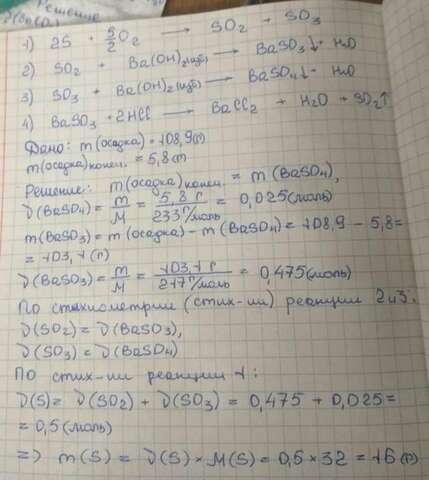 Решение
1) 2S + 5/2 O₂ → SO₂ + SO₃
2) SO₂ + Ba(OH)₂(изб) → BaSO₃↓ + H₂O
3) SO₃ + Ba(OH)₂(изб) → BaSO₄↓ + H₂O
4) BaSO₃ + 2HCl → BaCl₂ + H₂O + SO₂↑
Дано: m(осадка) = 108,9(г)
m(осадка)конеч. = 5,8(г)
Решение: m(осадка)конеч. = m(BaSO₄),
ν(BaSO₄) = m/M = 5,8 г / 233 г/моль = 0,025(моль)
m(BaSO₃) = m(осадка) - m(BaSO₄) = 108,9 - 5,8 =
= 103,1(г)
ν(BaSO₃) = m/M = 103,1 г / 217 г/моль = 0,475(моль)
По стехиометрии (стих-ии) реакции 2 и 3:
ν(SO₂) = ν(BaSO₃),
ν(SO₃) = ν(BaSO₄)
По стих-ии реакции 1:
ν(S) = ν(SO₂) + ν(SO₃) = 0,475 + 0,025 =
= 0,5(моль)
=> m(S) = ν(S) × M(S) = 0,5 × 32 = 16(г)